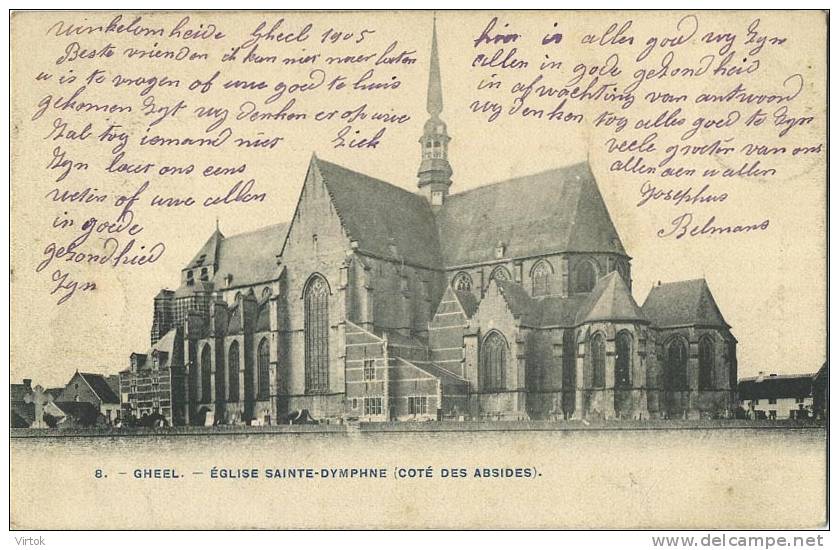 Winkelomheide Gheel 1905
Beste vrienden ik kan niet naer laten
u is te vragen of uwe goed te huis
gekomen Zyt wy denken er op uwe
Zal tog iemand niet Ziek
Zyn laet ons eens
weten of uwe allen
in goede
gezondhied
Zyn
hier is alles goed wy Zyn
allen in gode gezondheid
in afwachting van antwoord
wy denken tog alles goed te Zyn
veele groeten van ons
allen aen u allen
Josephus
Belmans
8. - GHEEL. - ÉGLISE SAINTE-DYMPHNE (COTÉ DES ABSIDES).
Virtok
www.delcampe.net